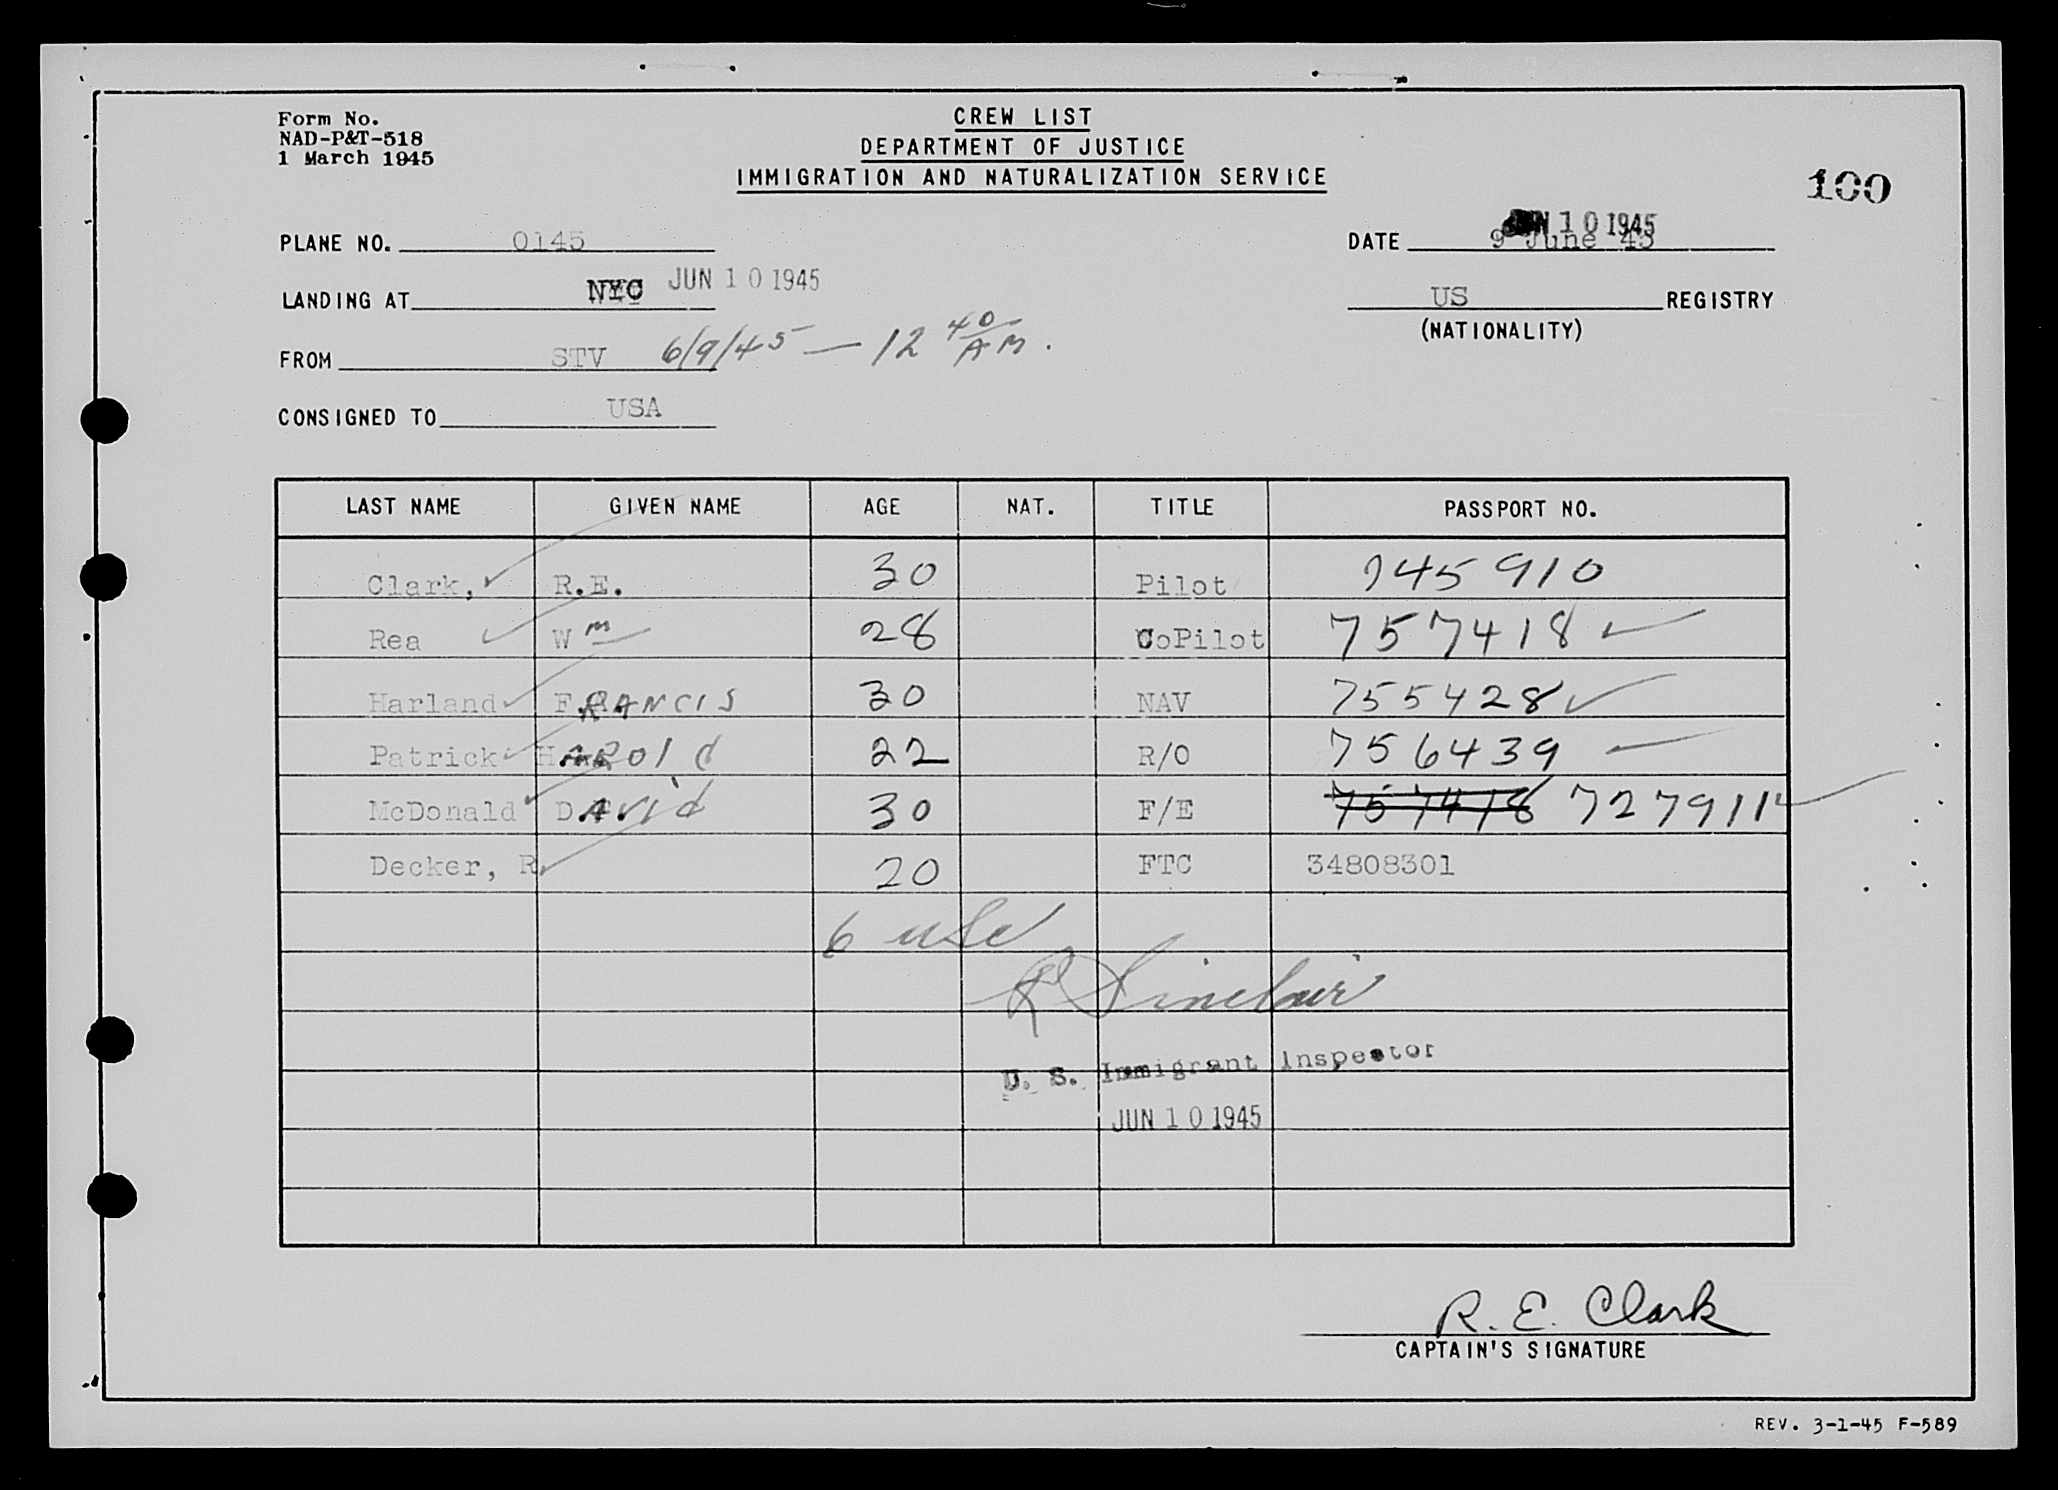 Form No.
NAD-P&T-518
1 March 1945
CREW LIST
DEPARTMENT OF JUSTICE
IMMIGRATION AND NATURALIZATION SERVICE
100
PLANE NO. 0145
DATE 9 June 45 JUN 10 1945
LANDING AT NYC JUN 10 1945
US REGISTRY
(NATIONALITY)
FROM STV 6/9/45 — 12 40 AM.
CONSIGNED TO USA
LAST NAME GIVEN NAME AGE NAT. TITLE PASSPORT NO.
Clark, R.E. 30 Pilot 745910
Rea Wm 28 CoPilot 757418
Harland FRANCIS 30 NAV 755428
Patrick HAROld 22 R/O 756439
McDonald DAvid 30 F/E 757418 727911
Decker, R 20 FTC 34808301
6 USC
R Sinclair
U. S. Immigrant Inspector
JUN 10 1945
R. E. Clark
CAPTAIN'S SIGNATURE
REV. 3-1-45 F-589